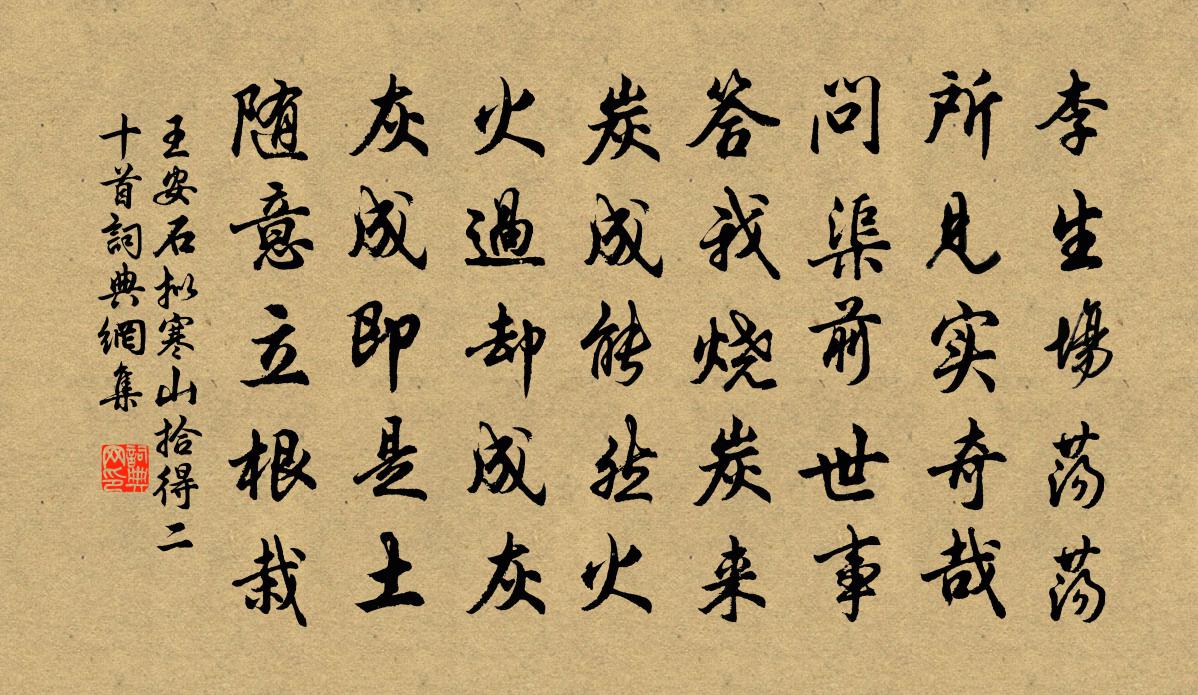 李生場荡荡
所见实奇哉
問渠前世事
答我烧炭来
炭成能然火
火過却成灰
灰成即是土
随意立根栽
王安石拟寒山拾得二
十首詞典網集
詞典
网印